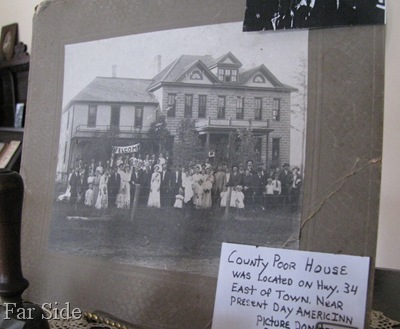 WELCOME
COUNTY POOR HOUSE
WAS LOCATED ON HWY. 34
EAST OF TOWN. NEAR
PRESENT DAY AMERICINN
PICTURE
Far Side